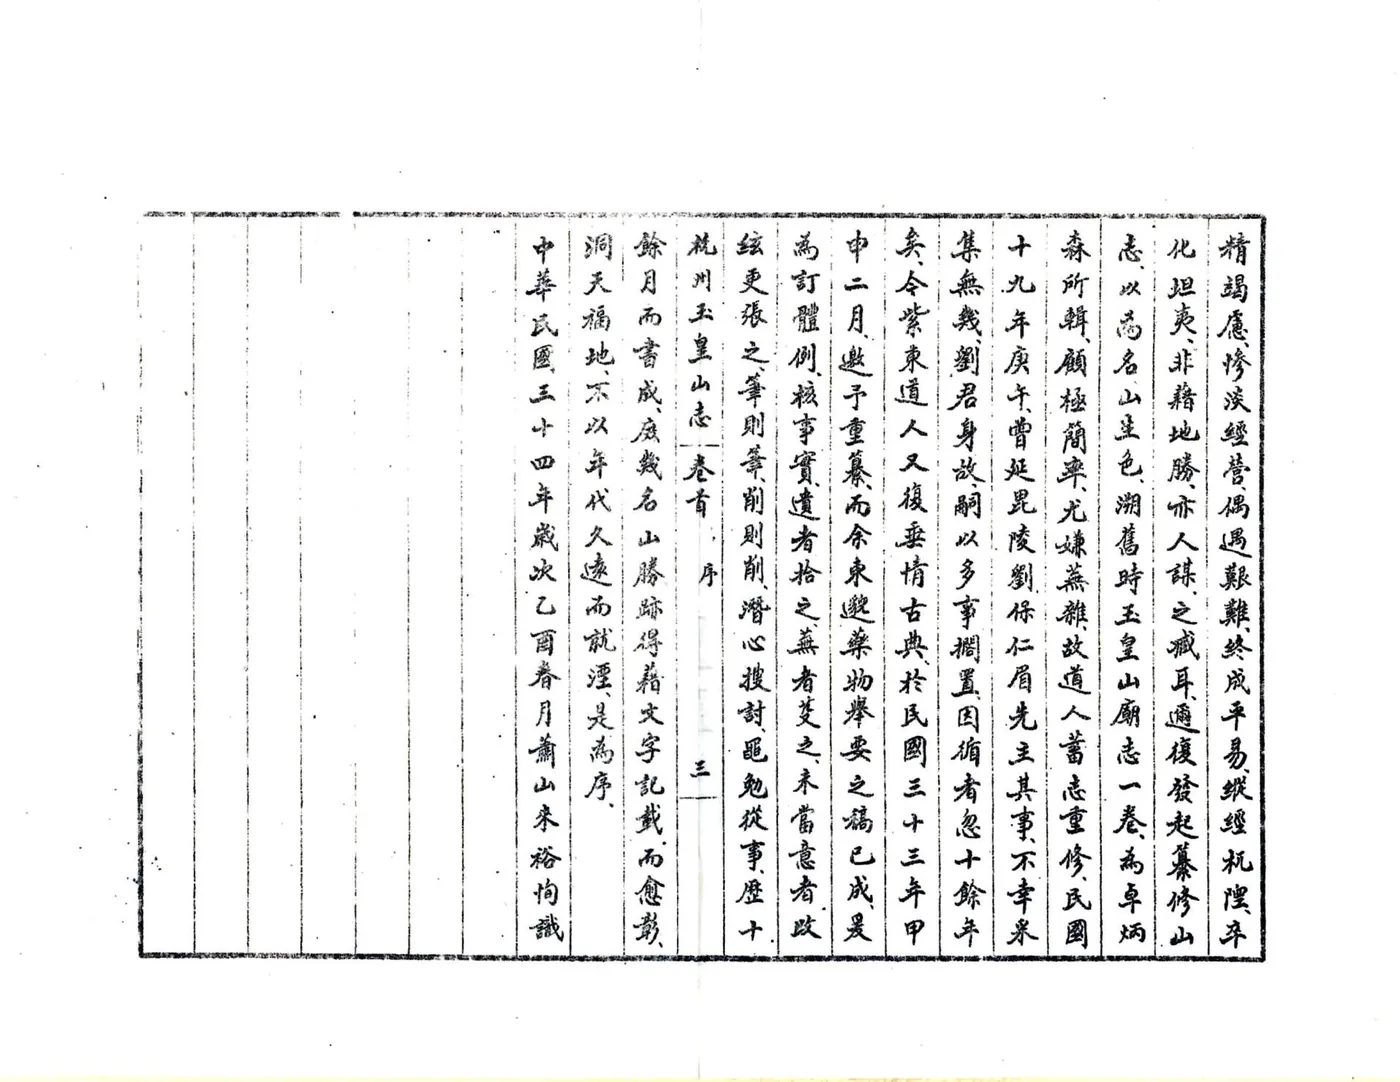 精竭慮、慘淡經營、偶遇艱難、終成平易、縱經杌隉、卒
化坦夷、非藉地勝、亦人謀、之臧耳、邇復發起纂修山
志、以為名、山生色、溯舊時玉皇山廟志一卷、為卓炳
森所輯、顧極簡率、尤嫌蕪雜、故道人蓄志重修、民國
十九年庚午、曾延毘陵劉、保仁眉先主其事、不幸采
集無幾、劉君身故、嗣以多事擱置、因循者忽十餘年
矣、今紫東道人又復垂情古典、於民國三十三年甲
申二月、邀予重纂、而余東邈藥物舉要之稿已成、爰
為訂體例、核事實、遺者拾之、蕪者芟之、未當意者、改
絃更張之、筆則筆、削則削、潛心搜討、黽勉從事、歷十
杭州玉皇山志 卷首 序 三
餘月而書成、庶幾名山勝跡得藉文字記載、而愈彰、
洞天福地、不以年代久遠而就湮、是為序、
中華民國三十四年歲次乙酉春月蕭山來裕恂識